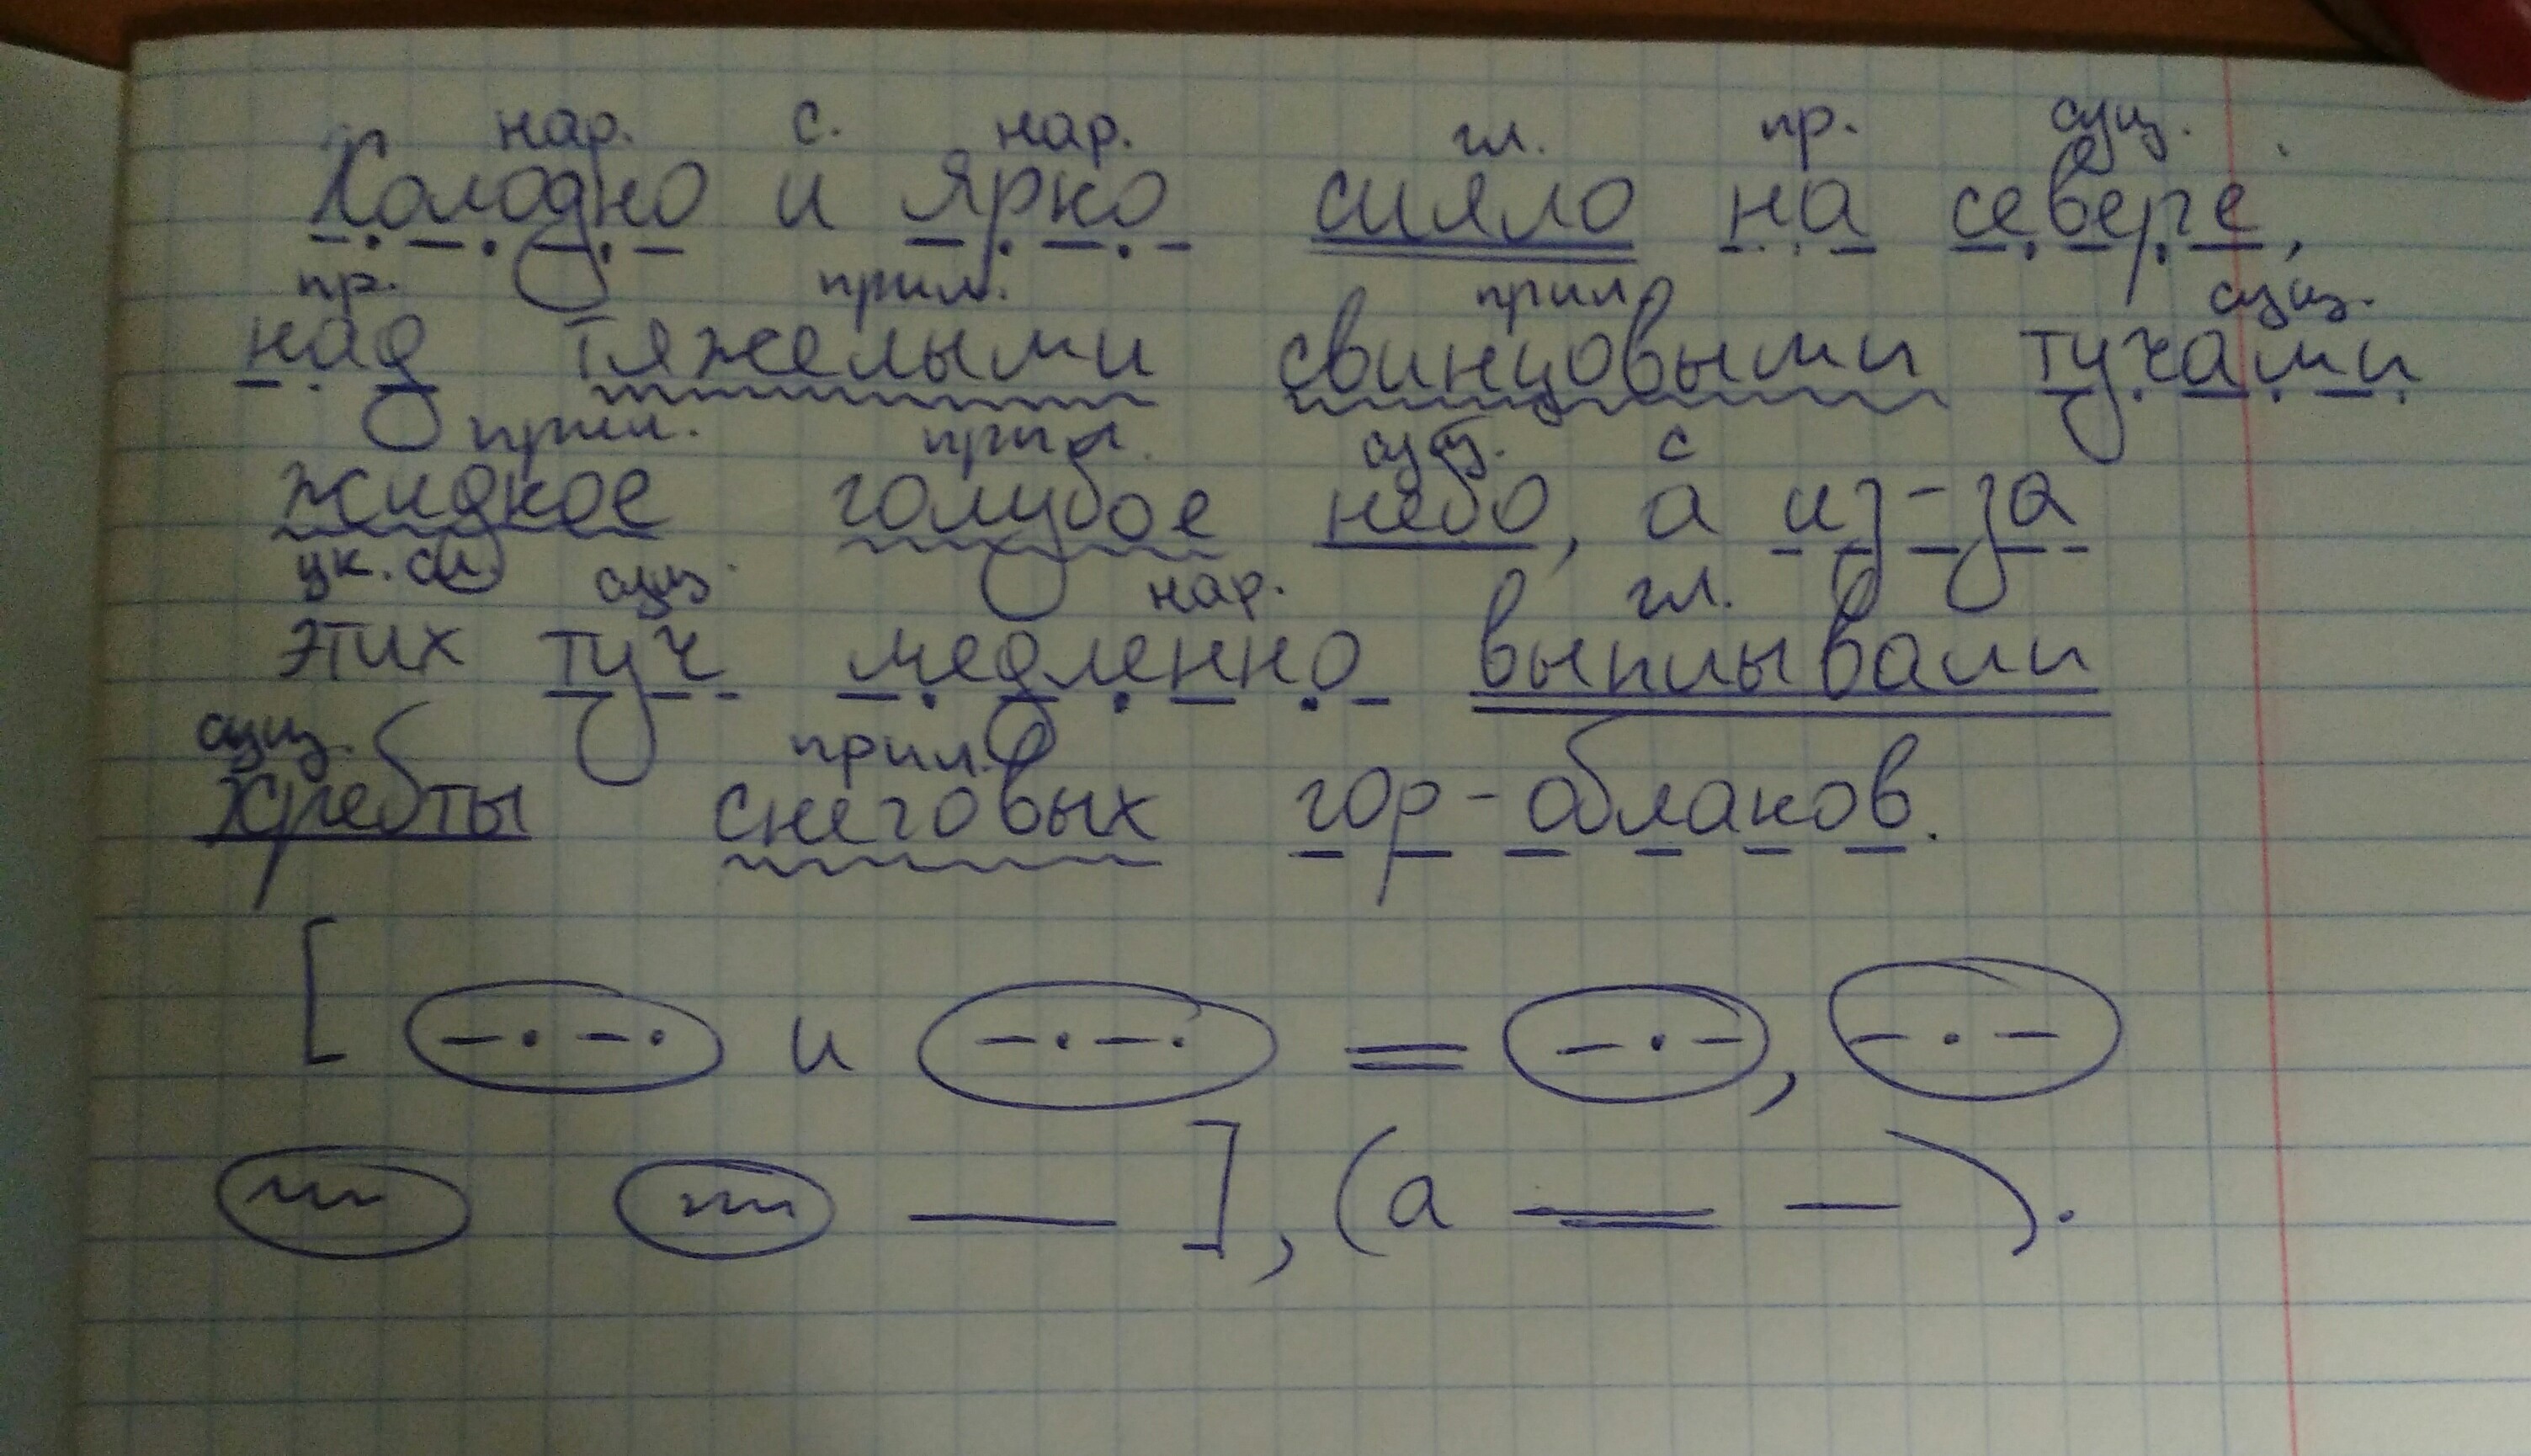 нар. с. нар. гл. пр. сущ.
Холодно и ярко сияло на севере,
пр. прил. прил. сущ.
над тяжелыми свинцовыми тучами
прил. прил. сущ. с
жидкое голубое небо, а из-за
ук. сл. сущ. нар. гл.
этих туч медленно выплывали
сущ. прил.
хребты снеговых гор-облаков.
[ и = ,
], (а ).